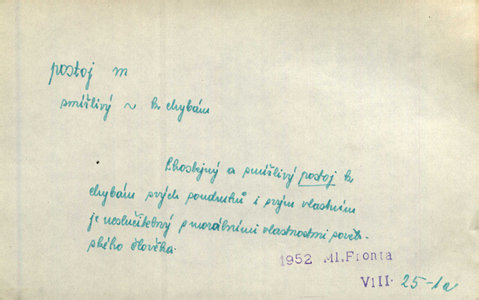 postoj m
smířlivý ~ k chybám
Lhostejný a smířlivý postoj k
chybám svých soudruhů i svým vlastním
je neslučitelný s morálními vlastnostmi sovět-
ského člověka.
1952 Ml.Fronta
VIII. 25-1a